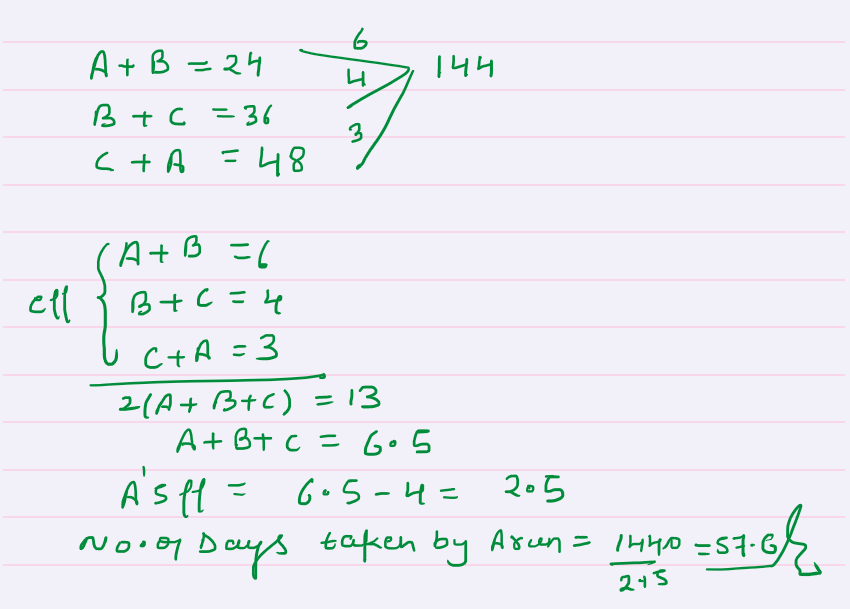 A + B = 24 6 144
4
B + C = 36
3
C + A = 48
A + B = 6
eff B + C = 4
C + A = 3
2(A + B + C) = 13
A + B + C = 6.5
A's ff = 6.5 - 4 = 2.5
No. of Days taken by Arun = 1440 = 57.6
2.5